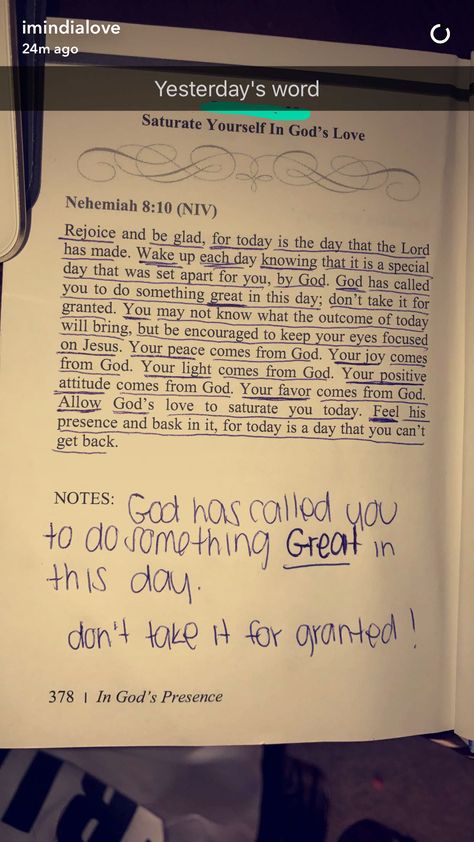 imindialove
24m ago
Yesterday's word
Saturate Yourself In God's Love
Nehemiah 8:10 (NIV)
Rejoice and be glad, for today is the day that the Lord
has made. Wake up each day knowing that it is a special
day that was set apart for you, by God. God has called
you to do something great in this day; don't take it for
granted. You may not know what the outcome of today
will bring, but be encouraged to keep your eyes focused
on Jesus. Your peace comes from God. Your joy comes
from God. Your light comes from God. Your positive
attitude comes from God. Your favor comes from God.
Allow God's love to saturate you today. Feel his
presence and bask in it, for today is a day that you can't
get back.
NOTES: God has called you
to do something Great in
this day.
don't take it for granted!
378 | In God's Presence